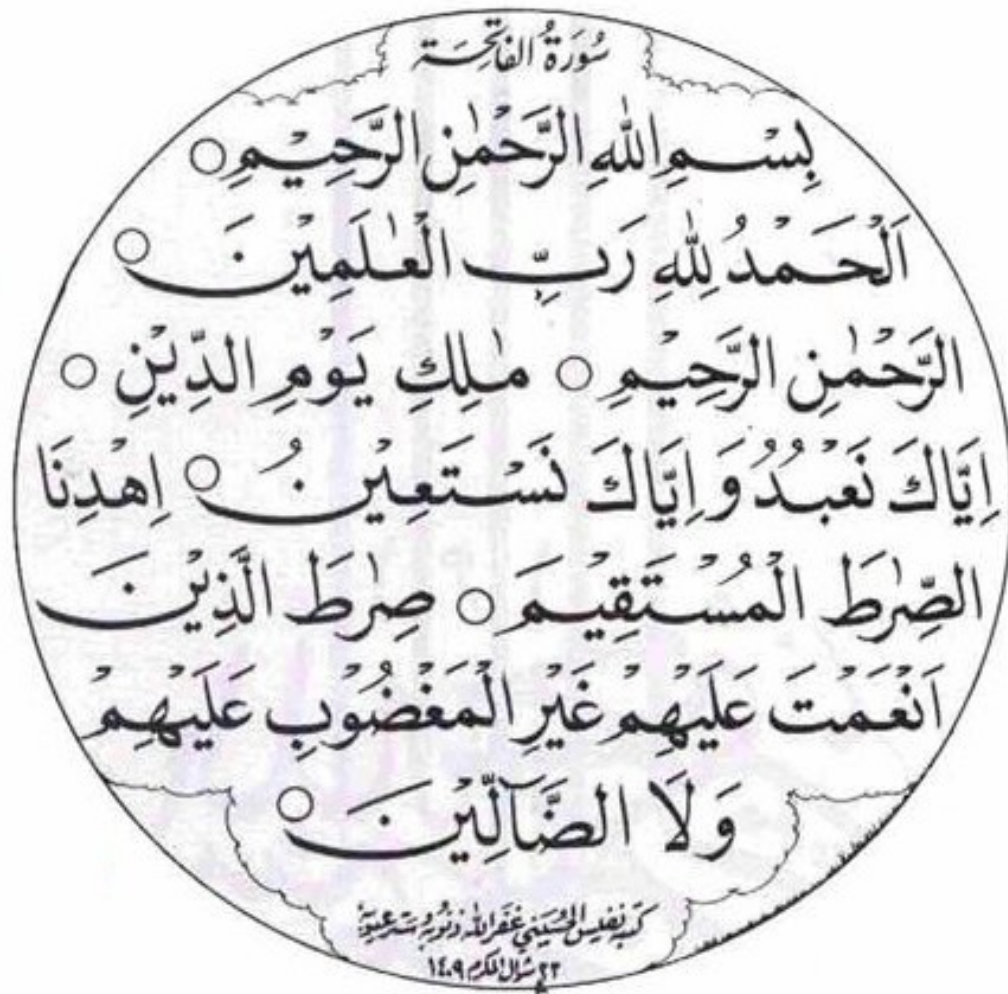 سُورَةُ الفَاتِحَة
بِسْمِ اللهِ الرَّحْمٰنِ الرَّحِيْمِ ○
اَلْحَمْدُ لِلّٰهِ رَبِّ الْعٰلَمِيْنَ ○
الرَّحْمٰنِ الرَّحِيْمِ ○ مٰلِكِ يَوْمِ الدِّيْنِ ○
اِيَّاكَ نَعْبُدُ وَ اِيَّاكَ نَسْتَعِيْنُ ○ اِهْدِنَا
الصِّرٰطَ الْمُسْتَقِيْمَ ○ صِرٰطَ الَّذِيْنَ
اَنْعَمْتَ عَلَيْهِمْ غَيْرِ الْمَغْضُوْبِ عَلَيْهِمْ
وَلَا الضَّآلِّيْنَ ○
كتبه نفيس الحُسَيني غفر الله ذنوبه وستر عيوبه
٢٣ شوال المكرم ١٤٠٩